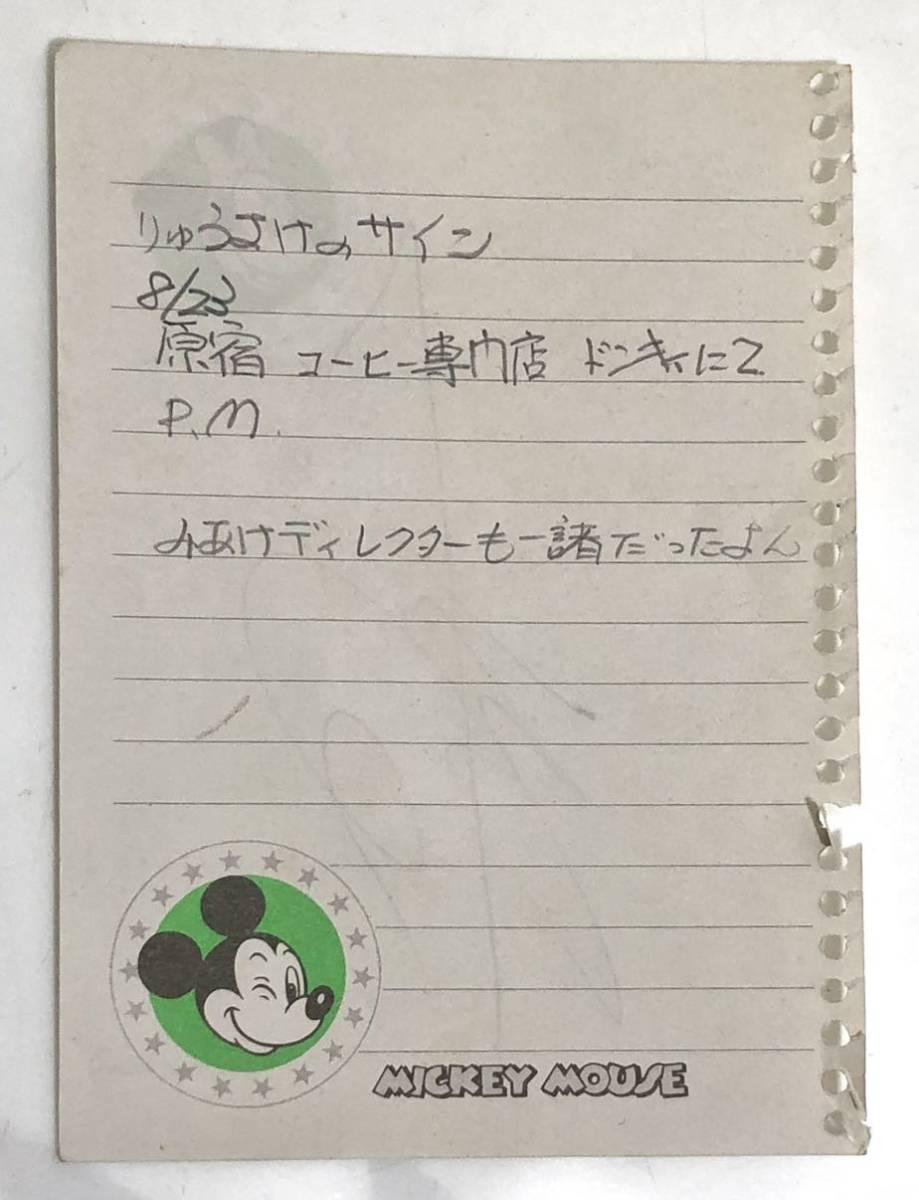 りゅうさけのサイン
8/23
原宿 コーヒー専門店 ドンキィにて
P.M.
みあけディレクターも一諸だったよん
MICKEY MOUSE